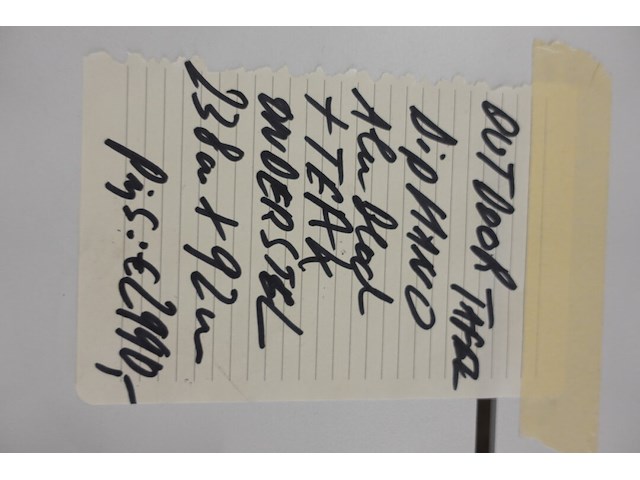 OUTDOOR TAFEL
DiPHANO
Alu blad
+ TEAK
ONDERSTEL
238 cm + 92 cm
Prijs: € 2990,-